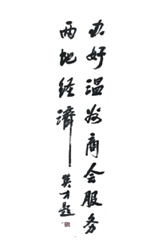 办好温州商会服务
两地经济
英才题